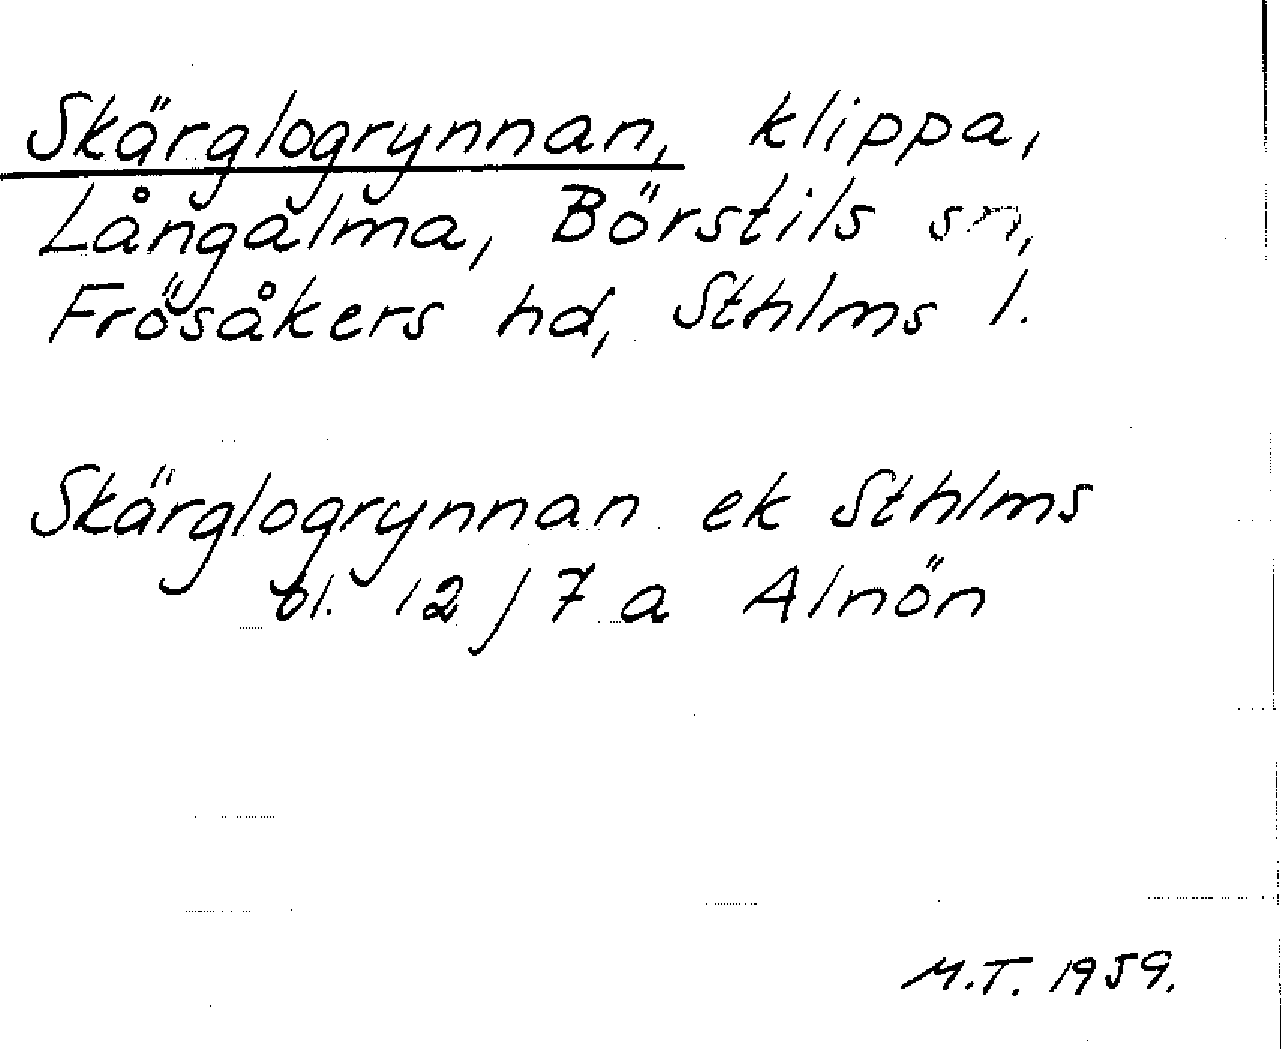 Skärglogrynnan, klippa,
Långalma, Börstils sn,
Frösåkers hd, Sthlms l.
Skärglogrynnan ek Sthlms
bl. 12 / 7 a Alnön
M.T. 1959.